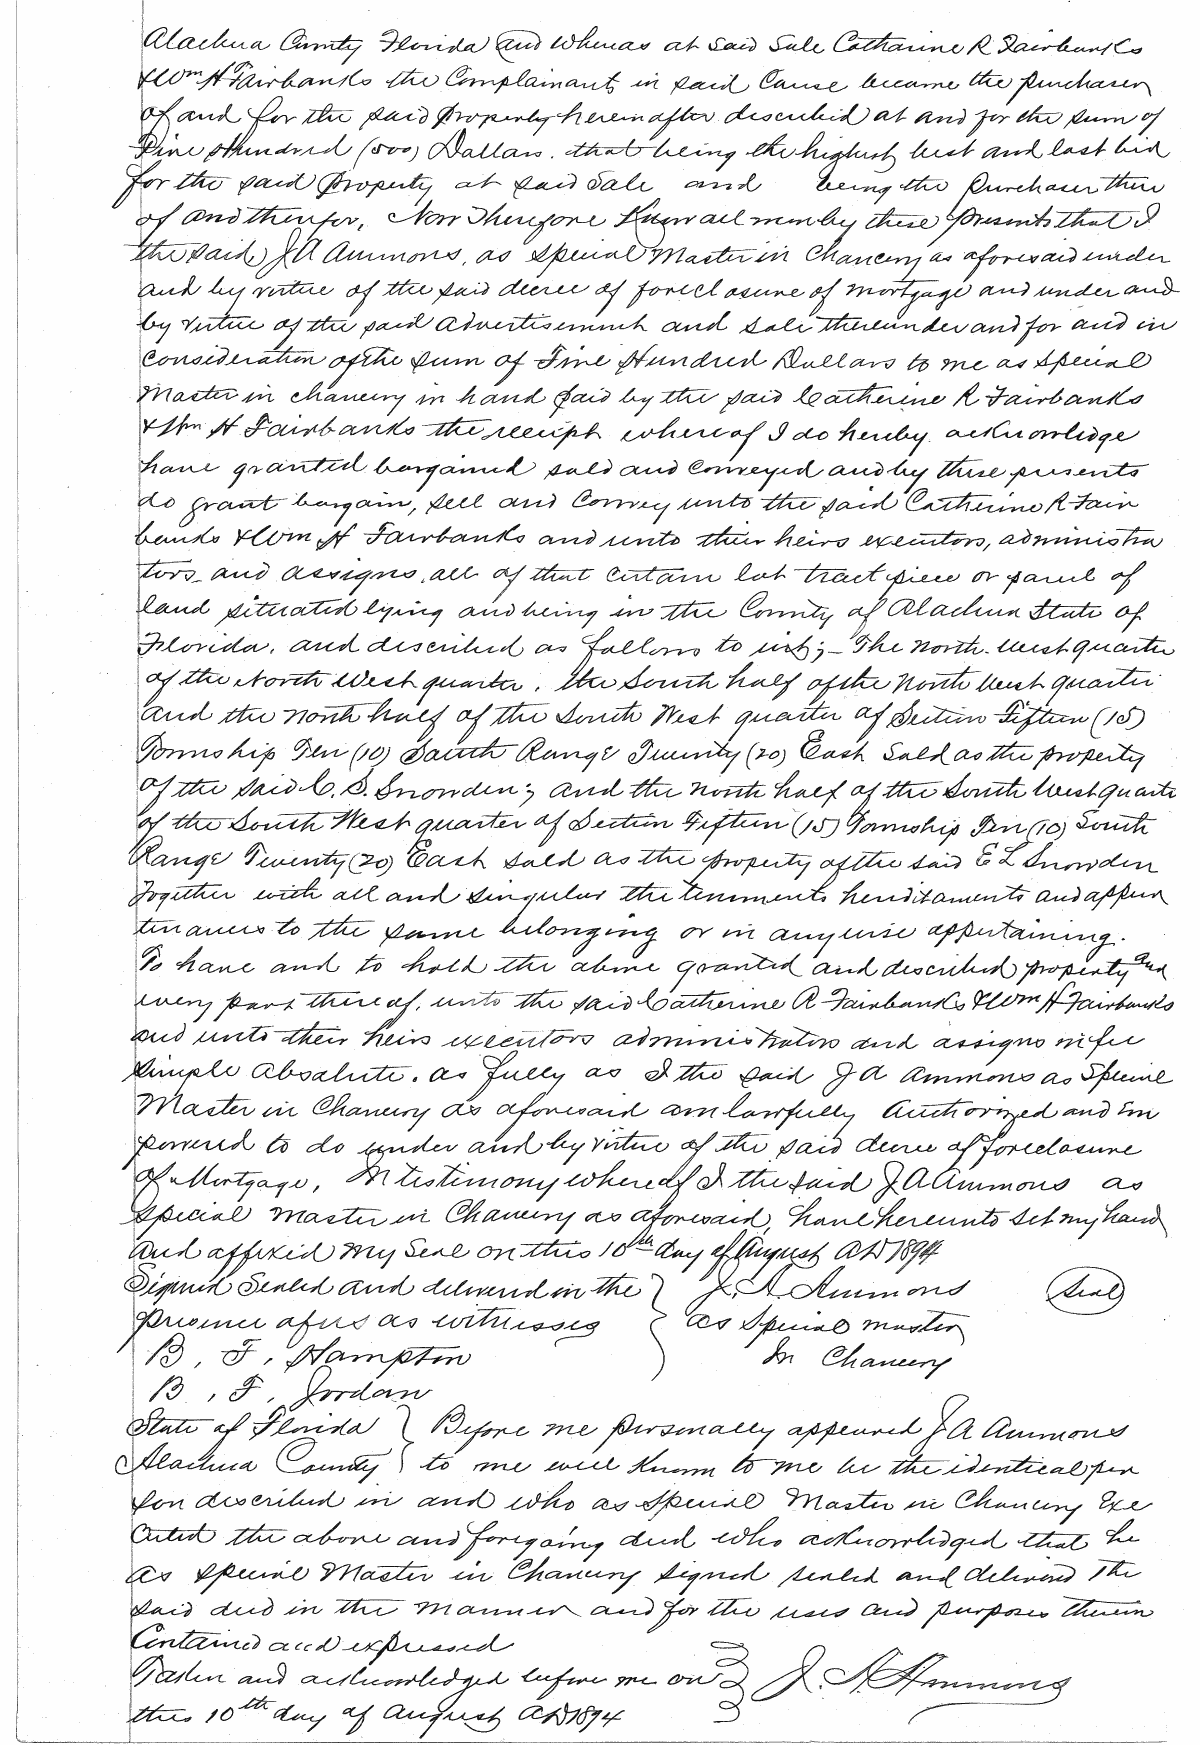 Alachua County Florida and whereas at said Sale Catharine R Fairbanks
& Wm H Fairbanks the Complainants in said Cause became the purchasers
of and for the said property hereinafter described at and for the sum of
Five Hundred (500) Dollars. that being the highest best and last bid
for the said property at said Sale and being the purchaser there
of and therefor, Now Therefore Know all men by these presents that I
the said J A Ammons, as special Master in Chancery as aforesaid under
and by virtue of the said decree of foreclosure of mortgage and under and
by virtue of the said advertisement and sale thereunder and for and in
consideration of the sum of Five Hundred Dollars to me as special
Master in chancery in hand paid by the said Catherine R Fairbanks
& Wm H Fairbanks the receipt whereof I do hereby acknowledge
have granted bargained sold and conveyed and by these presents
do grant bargain, sell and Convey unto the said Catherine R Fair
banks & Wm H Fairbanks and unto their heirs executors, administra
tors and assigns, all of that certain lot tract piece or parcel of
land situated lying and being in the County of Alachua State of
Florida, and described as follows to wit; - The North West quarter
of the North West quarter. the South half of the North West quarter
and the north half of the South West quarter of Section Fifteen (15)
Township Ten (10) South Range Twenty (20) East Sold as the property
of the said C. S. Snowden; and the north half of the South West quarte
of the South West quarter of Section Fifteen (15) Township Ten (10) South
Range Twenty (20) East sold as the property of the said E L Snowden
Together with all and singular the tenements hereditaments and appur
tinances to the same belonging or in anywise appertaining.
To have and to hold the above granted and described property and
every part thereof, unto the said Catherine R Fairbanks & Wm H Fairbanks
and unto their heirs executors administrators and assigns in fee
simple absolute. as fully as I the said J A Ammons as Special
Master in Chancery as aforesaid am lawfully Authorized and Em
powered to do under and by virtue of the said decree of foreclosure
of Mortgage, In testimony whereof I the said J A Ammons as
special Master in Chancery as aforesaid, have hereunto set my hand
and affixed my Seal on this 10th day of August AD 1894
Signed Sealed and delivered in the J. A. Ammons Seal
presence of us as witnesses as Special master
B. F. Hampton In Chancery
B. F. Jordan
State of Florida Before me personally appeared J A Ammons
Alachua County to me well Known to me be the identical per
son described in and who as special Master in Chancery Exe
cuted the above and foregoing deed who acknowledged that he
as special Master in Chancery signed sealed and delivered The
said deed in the manner and for the uses and purposes therein
Contained and expressed
Taken and acknowledged before me on J. A. Ammons
this 10th day of August AD 1894